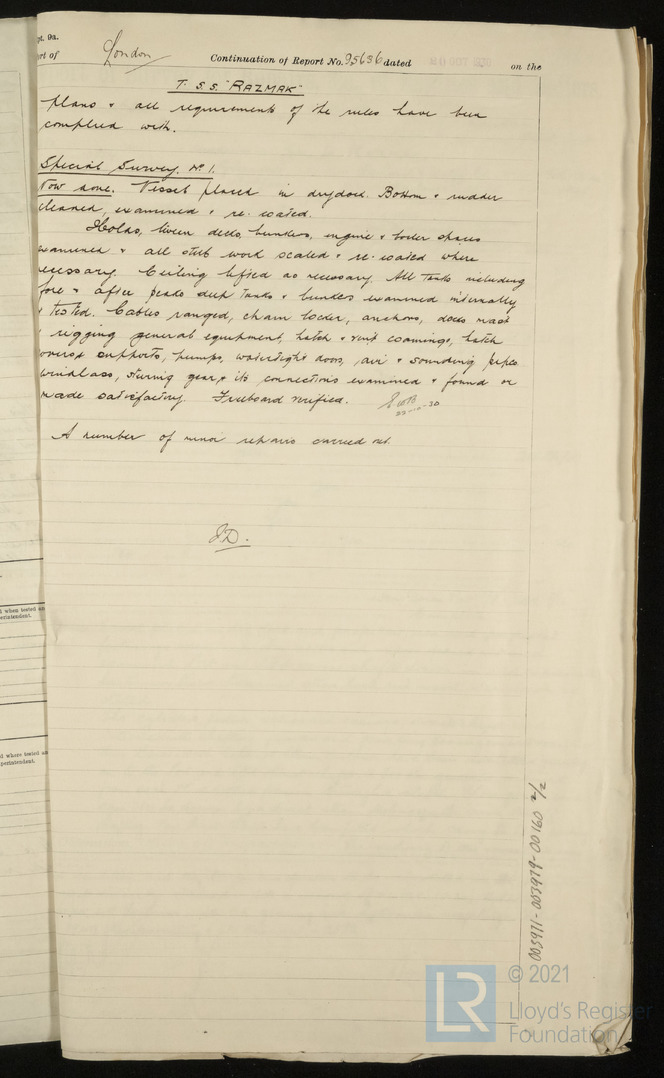 pt. 9a.
ort of London Continuation of Report No. 95636 dated on the
T.S.S. "RAZMAK"
plans & all requirements of the rules have been
complied with.
Special Survey. No 1.
Now done. Vessel placed in drydock. Bottom & rudder
cleaned, examined & re-coated.
Holds, tween decks, bunkers, engine & boiler spaces
examined & all steel work scaled & re-coated where
necessary. Ceiling lifted as necessary. All Tanks including
fore & after peaks deep tanks & bunkers examined internally
& tested. Cables ranged, chain locker, anchors, decks, mast
& rigging general equipment, hatch & vent coamings, hatch
covers & supports, pumps, watertight doors, air & sounding pipes
windlass, steering gear & its connections examined & found or
made satisfactory. Freeboard verified.
22-10-30
A number of minor repairs carried out.
J.D.
d when tested an
perintendent.
d where tested an
perintendent.
003971-003979-00160 2/2
LR
© 2021
Lloyd's Register
Foundation